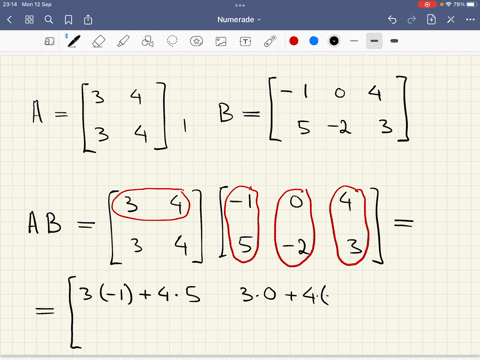 23:14 Mon 12 Sep 79%
Numerade
A = [3 4
3 4] , B = [-1 0 4
5 -2 3]
AB = [3 4
3 4] [-1 0 4
5 -2 3] =
= [3(-1) + 4·5 3·0 + 4·(